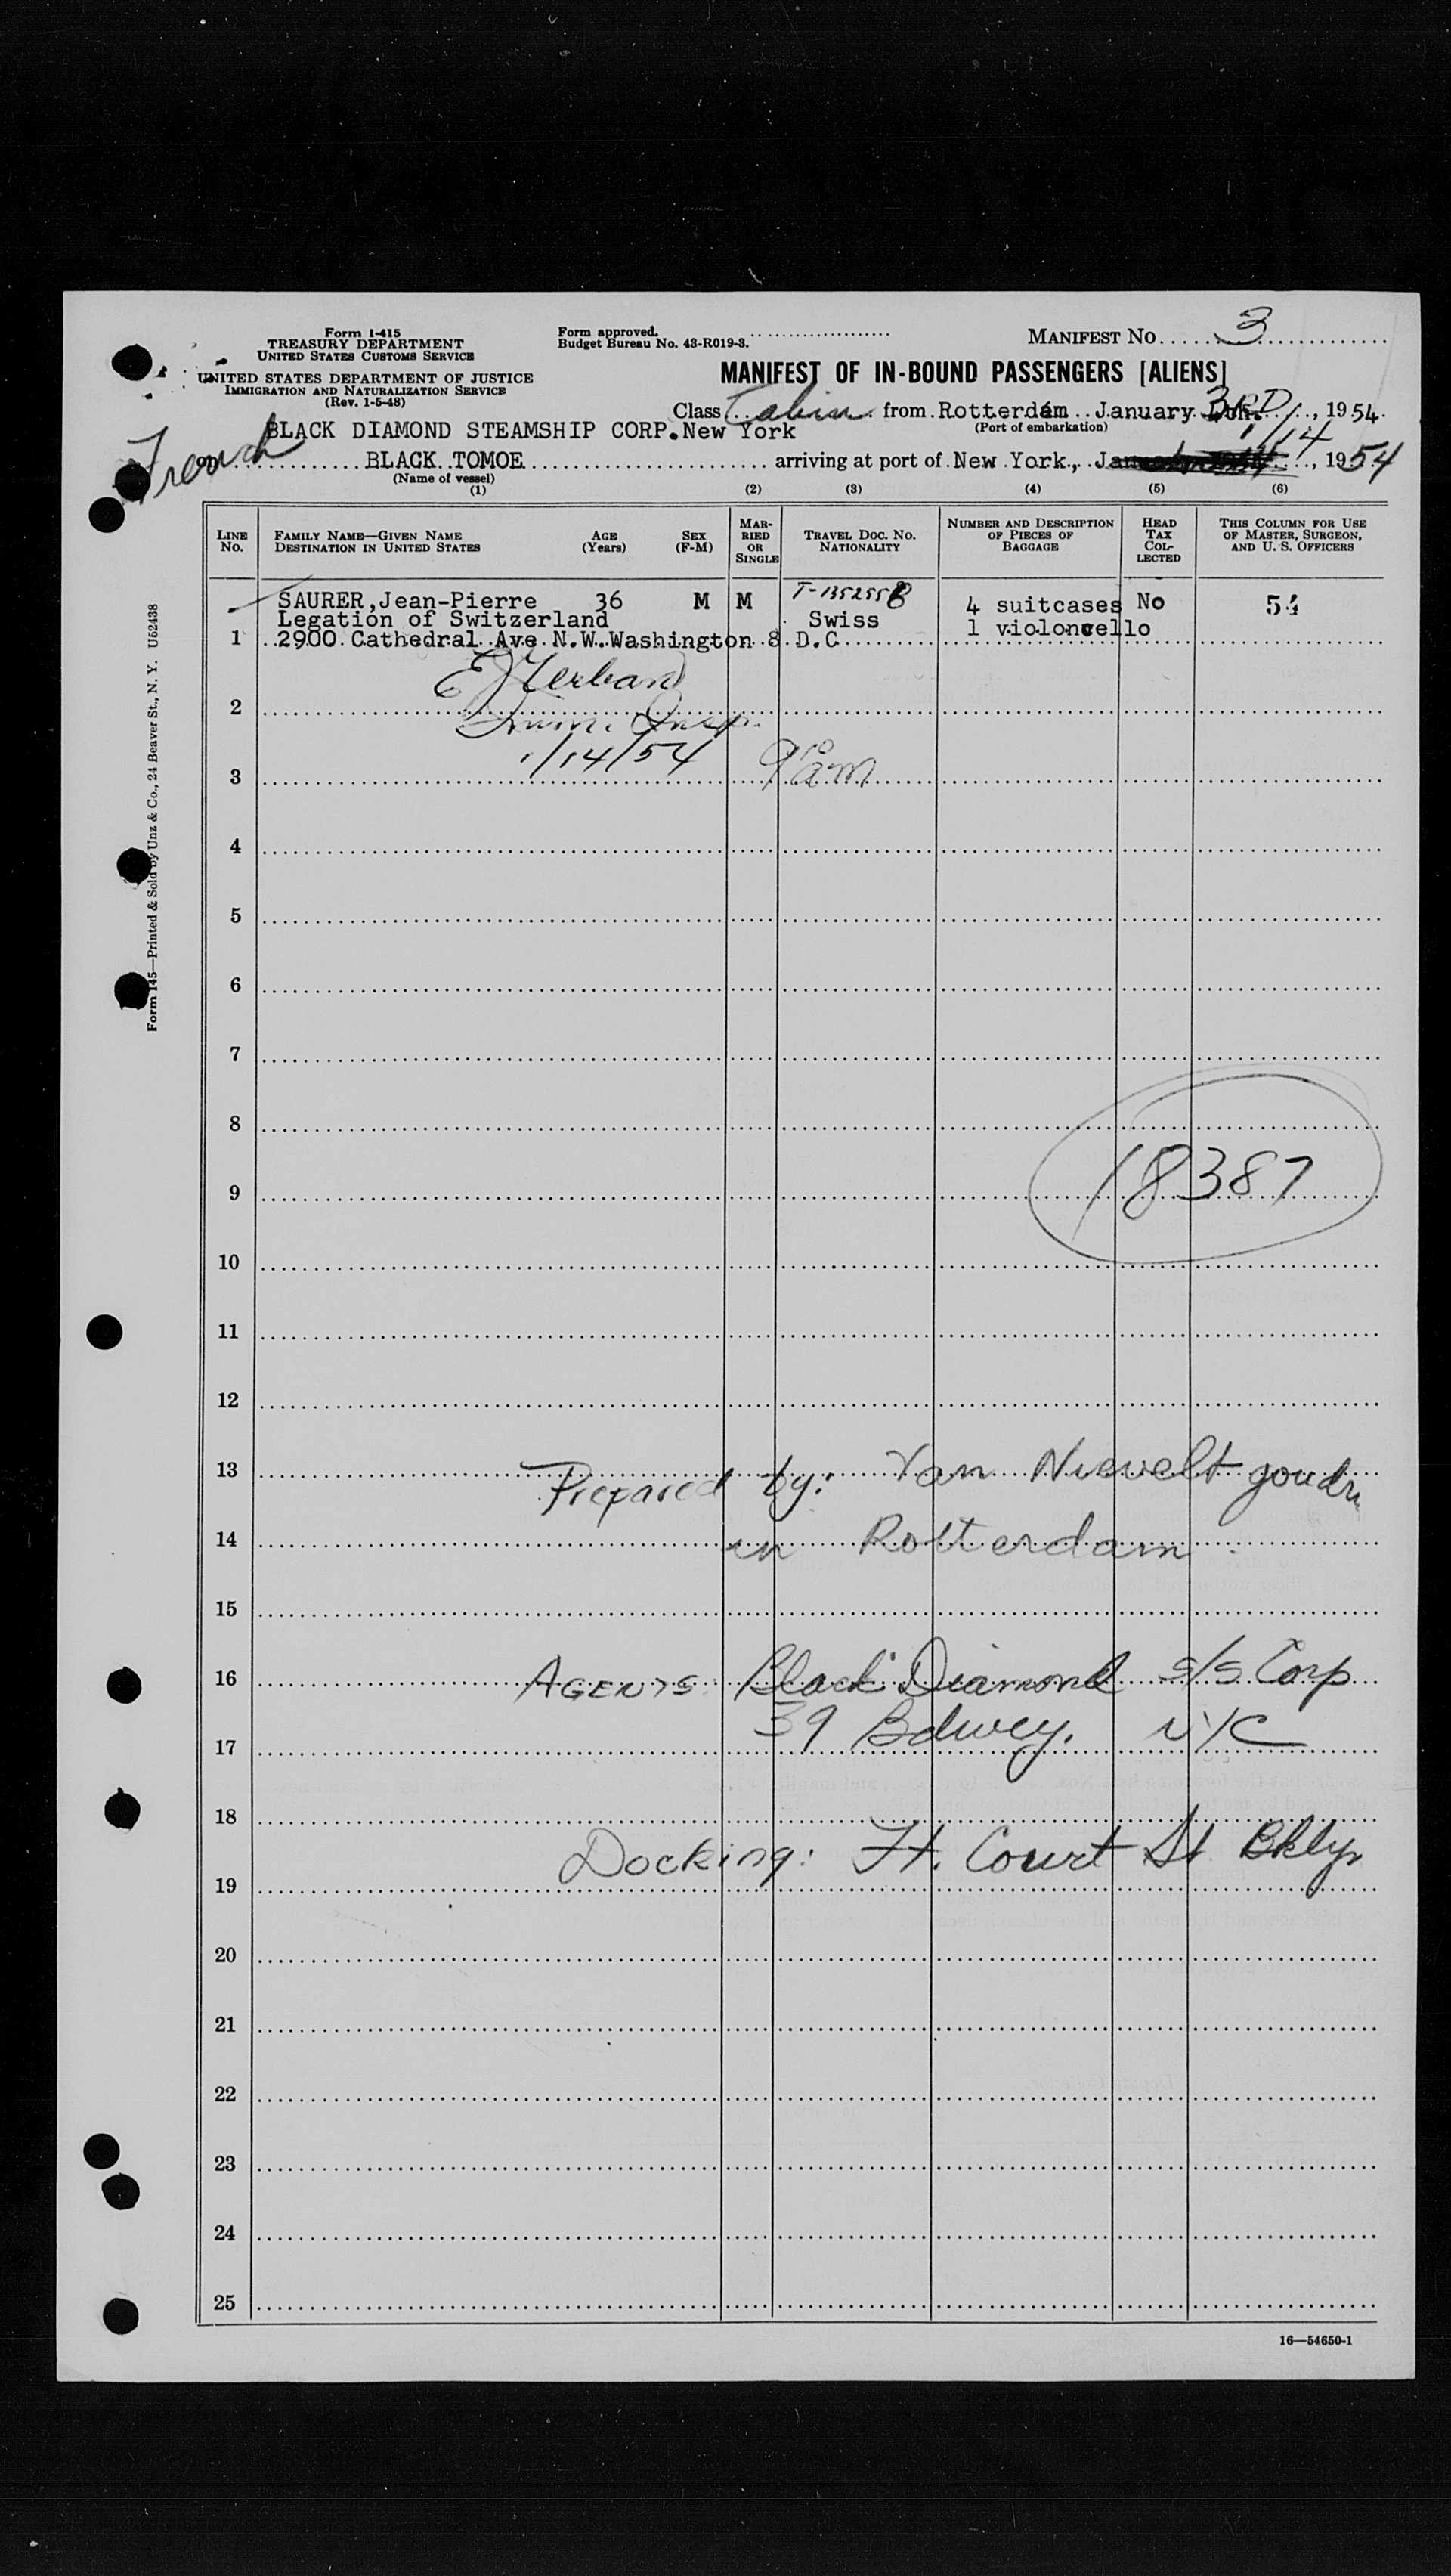 Form I-415
TREASURY DEPARTMENT
UNITED STATES CUSTOMS SERVICE
UNITED STATES DEPARTMENT OF JUSTICE
IMMIGRATION AND NATURALIZATION SERVICE
(Rev. 1-5-48)
Form approved.
Budget Bureau No. 43-R019-3.
MANIFEST NO. 3
MANIFEST OF IN-BOUND PASSENGERS [ALIENS]
Class Cabin from Rotterdam January 3RD, 1954
(Port of embarkation)
French
BLACK DIAMOND STEAMSHIP CORP. New York
1/14
on BLACK TOMOE arriving at port of New York, 1954
(Name of vessel)
(1) (2) (3) (4) (5) (6)
LINE NO.
FAMILY NAME—GIVEN NAME
DESTINATION IN UNITED STATES
AGE (Years)
SEX (F-M)
MARRIED OR SINGLE
TRAVEL DOC. NO.
NATIONALITY
NUMBER AND DESCRIPTION OF PIECES OF BAGGAGE
HEAD TAX COLLECTED
THIS COLUMN FOR USE OF MASTER, SURGEON, AND U. S. OFFICERS
SAURER, Jean-Pierre 36 M M T-1352558 4 suitcases No 54
Legation of Switzerland Swiss 1 violoncello
1 2900 Cathedral Ave N.W. Washington 8 D.C
2
Imm. Insp.
1/14/54 9 10 am
3
4
5
6
7
8
18387
9
10
11
12
13
Prepared by: Van Nievelt goudr
14
in Rotterdam
15
16
AGENTS: Black Diamond S/S Corp
39 Bdwey. NYC
17
18
Docking: Ft. Court St Bklyn
19
20
21
22
23
24
25
16—54650-1
Form 145—Printed & Sold by Unz & Co., 24 Beaver St., N. Y. U52438